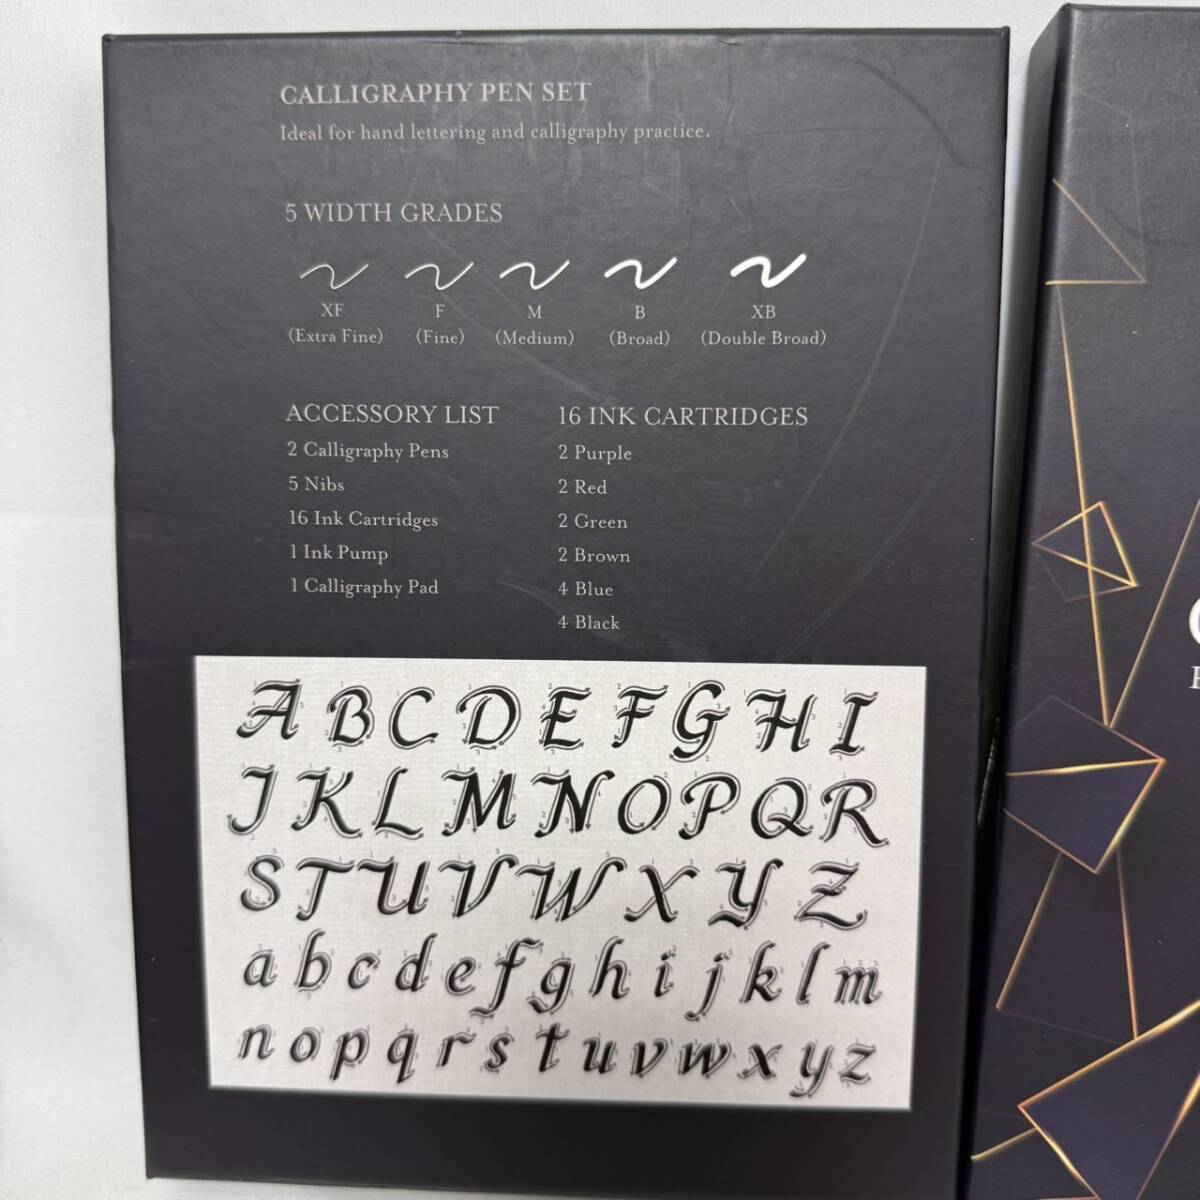 CALLIGRAPHY PEN SET
Ideal for hand lettering and calligraphy practice.
5 WIDTH GRADES
XF F M B XB
(Extra Fine) (Fine) (Medium) (Broad) (Double Broad)
ACCESSORY LIST
2 Calligraphy Pens
5 Nibs
16 Ink Cartridges
1 Ink Pump
1 Calligraphy Pad
16 INK CARTRIDGES
2 Purple
2 Red
2 Green
2 Brown
4 Blue
4 Black
A B C D E F G H I
J K L M N O P Q R
S T U V W X Y Z
a b c d e f g h i j k l m
n o p q r s t u v w x y z